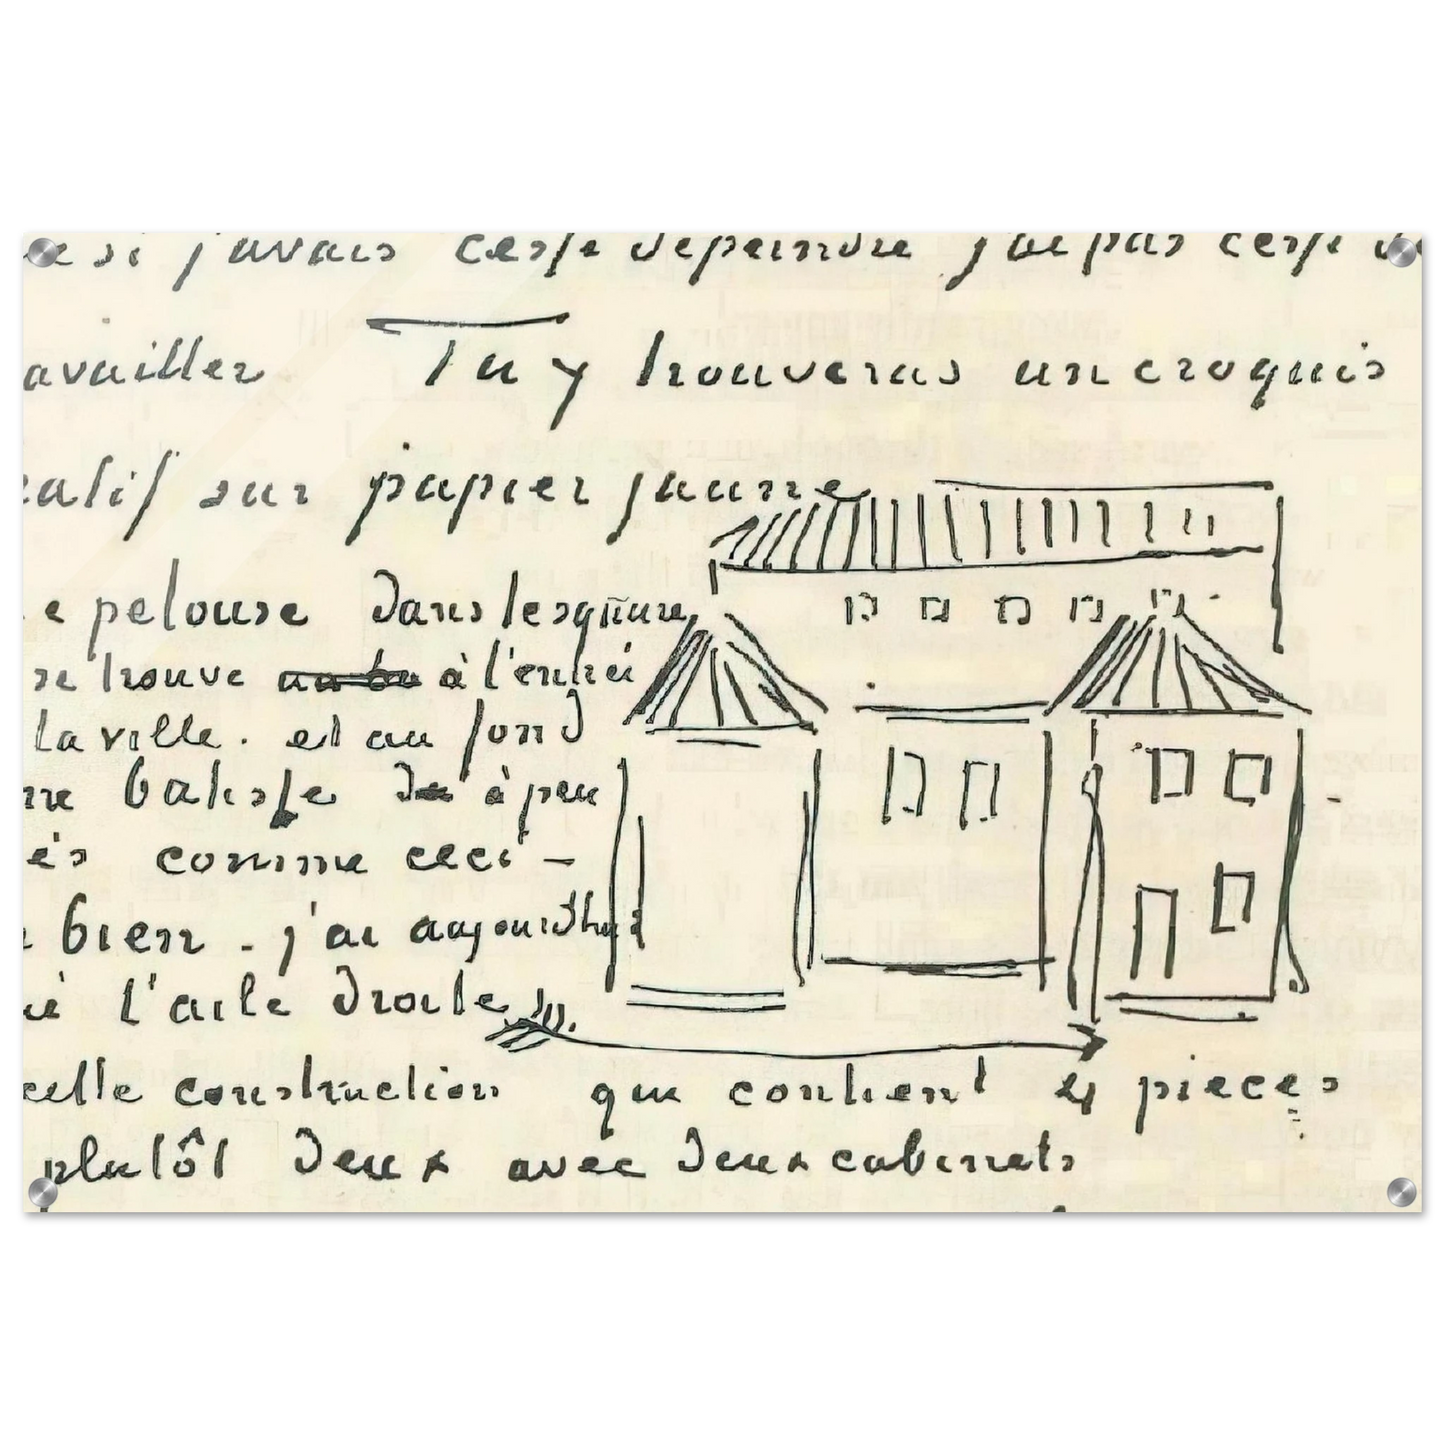 si j'avais cessé de peindre j'ai pas cessé de
availler Tu y trouveras un croquis
catif sur papier jaune
e pelouse dans le square
se trouve à l'entrée
la ville. et au fond
ne batisse de à peu
ès comme ceci -
bien - j'ai aujourdhui
é l'aile droite
cette construction qui contient 4 pieces
plutôt deux avec deux cabinets